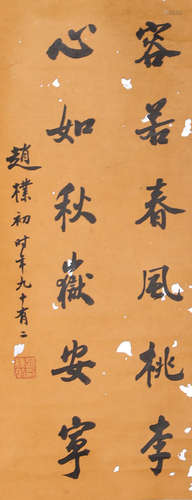 容若春風桃李
心如秋嶽安寧
趙樸初时年九十有二